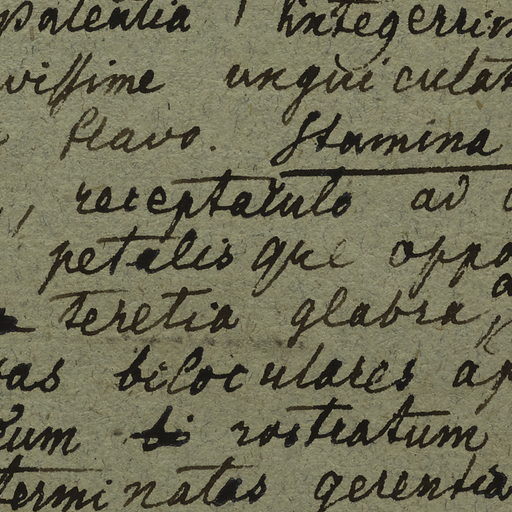 patentia integerrim
vissime unguiculat
flavo. Stamina
, receptaculo ad
petalisque oppo
teretia glabra
as biloculares ap
um rostratum
terminatas gerentia